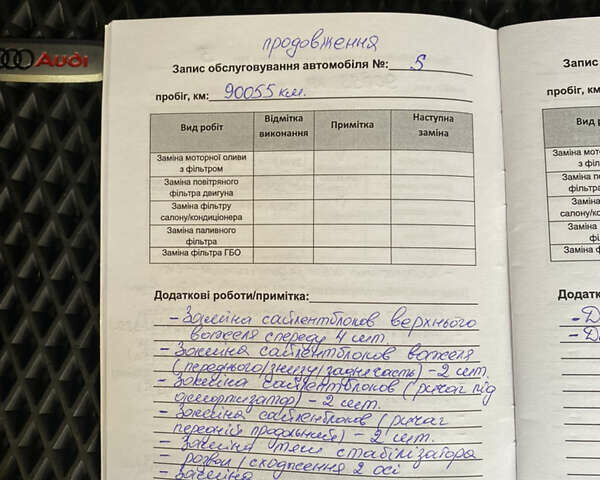 Audi
продовження
Запис обслуговування автомобіля №: 5
пробіг, км: 90055 км.
Вид робіт
Відмітка виконання
Примітка
Наступна заміна
Заміна моторної оливи з фільтром
Заміна повітряного фільтра двигуна
Заміна фільтру салону/кондиціонера
Заміна паливного фільтра
Заміна фільтра ГБО
Додаткові роботи/примітка:
- Заміна сайлентблоков верхнього
важеля спереду 4 шт.
- Заміна сайлентблоков важеля
(переднього/знизу/задня часть) - 2 шт.
- Заміна сайлентблоков (ричаг під
амортизатор) - 2 шт.
- Заміна сайленблоков (ричаг
передній продольний) - 2 шт.
- Заміна тяги стабілізатора
- розвал / сходження 2 осі
- Заміна
Запис
пробіг, км:
Вид р
Заміна мото
з філ
Заміна по
фільтра
Заміна
салону/ко
Заміна
фі
Заміна ф
Додатк
- Д
- Д